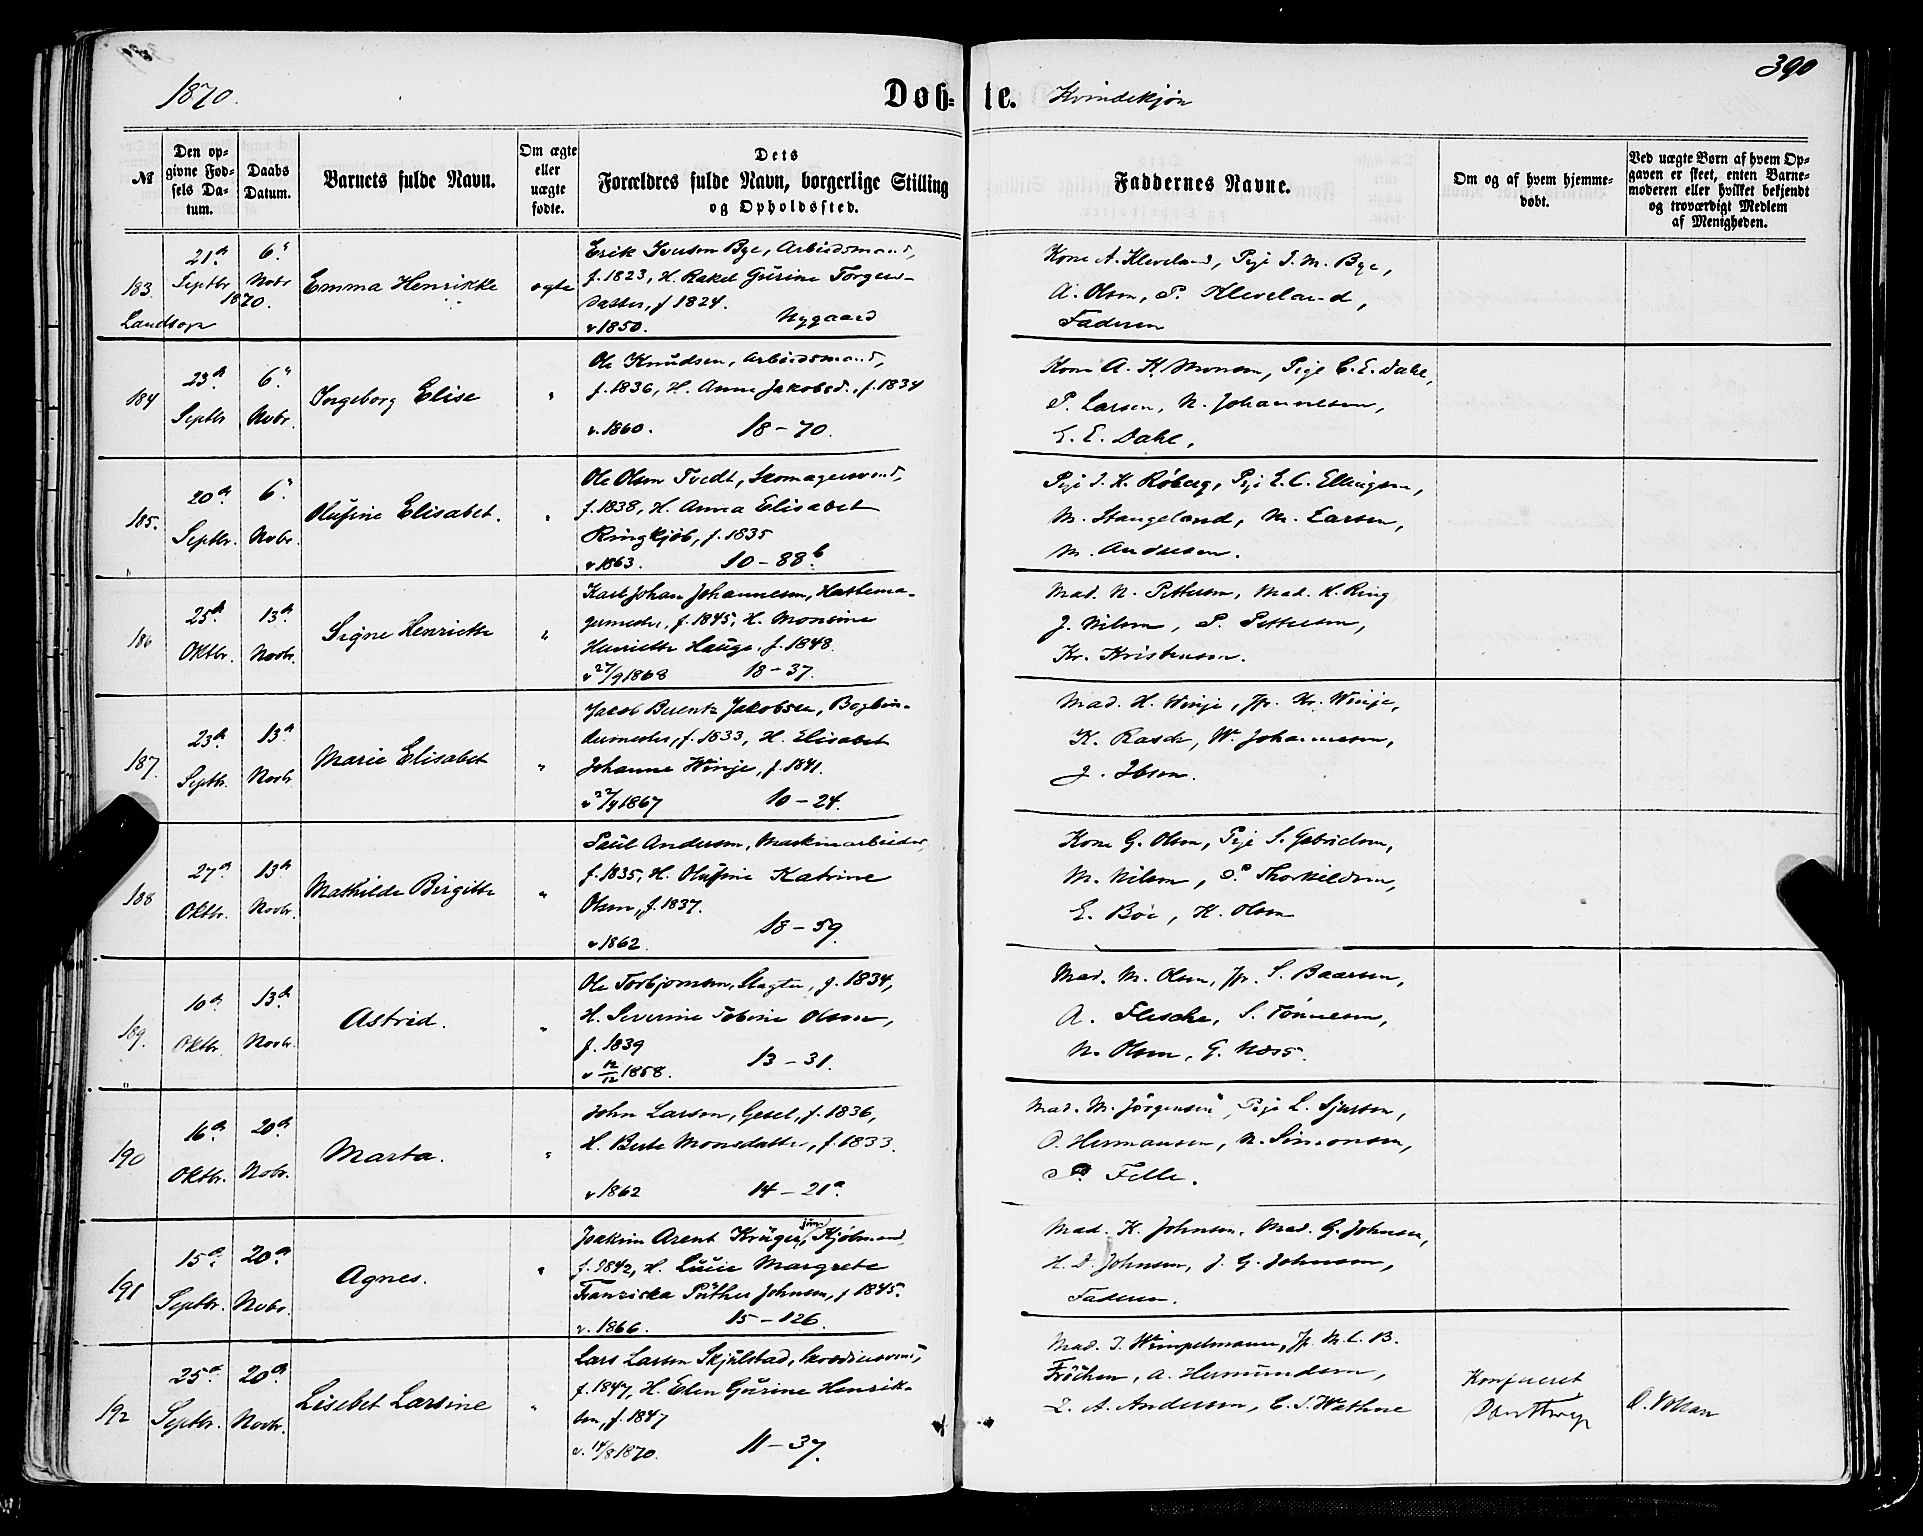 390
1870.
Døb- te. Kvindekjøn
№
Den op-
givne Fød-
sels Da-
tum.
Daabs
Datum.
Barnets fulde Navn.
Om ægte
eller
uægte
fødte.
Dets
Forældres fulde Navn, borgerlige Stilling
og Opholdssted.
Faddernes Navne.
Om og af hvem hjemme-
døbt.
Ved uægte Børn af hvem Op-
gaven er skeet, enten Barne-
moderen eller hvilket bekjendt
og troværdigt Medlem
af Menigheden.
183.
Landsogn
21de Septbr
6te Nobr
1870.
Emma Henrikke
ægte
Erik Iversen Bye, Arbeidsmand,
f. 1823, H. Rakel Gurine Torgers-
datter, f 1824.
v 1850. Nygaard
Kone A. Kleveland, Pige I. M. Bye,
A. Olsen, P. Kleveland,
Faderen
184
23de Septbr
6te Nobr.
Ingeborg Elise
"
Ole Knudsen, Arbeidsmand,
f. 1836, H. Anne Jakobsd., f. 1834
v. 1860. 18-70.
Kone A. K. Monsen, Pige C. E. Dahl,
P. Larsen, N. Johannesen,
E. E. Dahl,
185.
20de Septbr.
6te Nobr.
Olufine Elisabet.
"
Ole Olsen Tvedt, Skomagersvend,
f. 1838, H. Anna Elisabet
Ringkjøb, f. 1835
v 1863. 10-88b
Pige I. K. Røberg, Pige E. C. Ellingsen,
M. Stangeland, M. Larsen,
M. Andresen.
186
25de Oktbr.
13de Novbr.
Signe Henriette
"
Karl Johan Johannesen, Hattema-
germester, f. 1845, H. Monsine
Henriette Hauge, f. 1848.
v 27/9 1868 18-37.
Mad. N. Pettersen, Mad. K. Ring
J. Nilsen, P. Pettersen,
Kr. Kristensen.
187.
23de Septbr.
13de Novbr.
Marie Elisabet
"
Jakob Berentz Jakobsen, Bogbin-
dermester, f. 1833, H. Elisabet
Johanne Winje, f. 1841.
v 22/4 1867 10-24.
Mad. H. Winje, Jfr. Kr. Winje,
K. Rasch, W. Johannesen,
J. Ibsen.
188
27de Oktbr.
13de Novbr.
Mathilde Birgitte
"
Paul Andersen, Maskinarbeider,
f. 1835, H. Olufine Katrine
Olsen, f. 1837.
v 1862. 18-59.
Kone G. Olsen, Pige S. Gabrielsen,
M. Nilsen, P. Thorkildsen,
E. Bøe, K. Olsen
189.
10de Oktbr.
13de Novbr.
Astrid.
"
Ole Torbjørnsen, Slagter, f. 1834,
H. Severine Tobine Olsen,
f. 1839
v 12/12 1858. 13-31.
Mad. M. Olsen, Jfr. S. Baarsen,
A. Flesche, S. Tønnesen,
N. Olsen, G. Næss.
190
16de Oktbr.
20de Nobr.
Marta.
"
John Larsen, Gesel, f. 1836,
H. Berte Monsdatter, f. 1833.
v 1862 14-21a.
Mad. M. Jørgensen, Pige L. Sjursen,
O. Hermansen, N. Simonsen,
P. Felle.
191
15de Septbr.
20de Nobr.
Agnes.
"
Joakim Arent Krüger, jun Kjøbmand,
f. 1842, H. Lucie Margrete
Franziska Püther Johnsen, f 1845.
v. 1866. 15-126.
Mad. K. Johnsen, Mad. G. Johnsen,
H. D. Johnsen, J. G. Johnsen,
Faderen.
192
25de Septbr.
20de Novbr.
Lisebet Larsine
"
Lars Larsen Skjulstad, Skrædersvend,
f. 1847, H. Elen Gurine Henrik-
sen, f. 1847
v. 14/8 1870. 11-37.
Mad. I. Wimpelmann, Jfr. M. C. B.
Frøchen, A. Hermundsen,
L. A. Andersen, C. S. Wathne